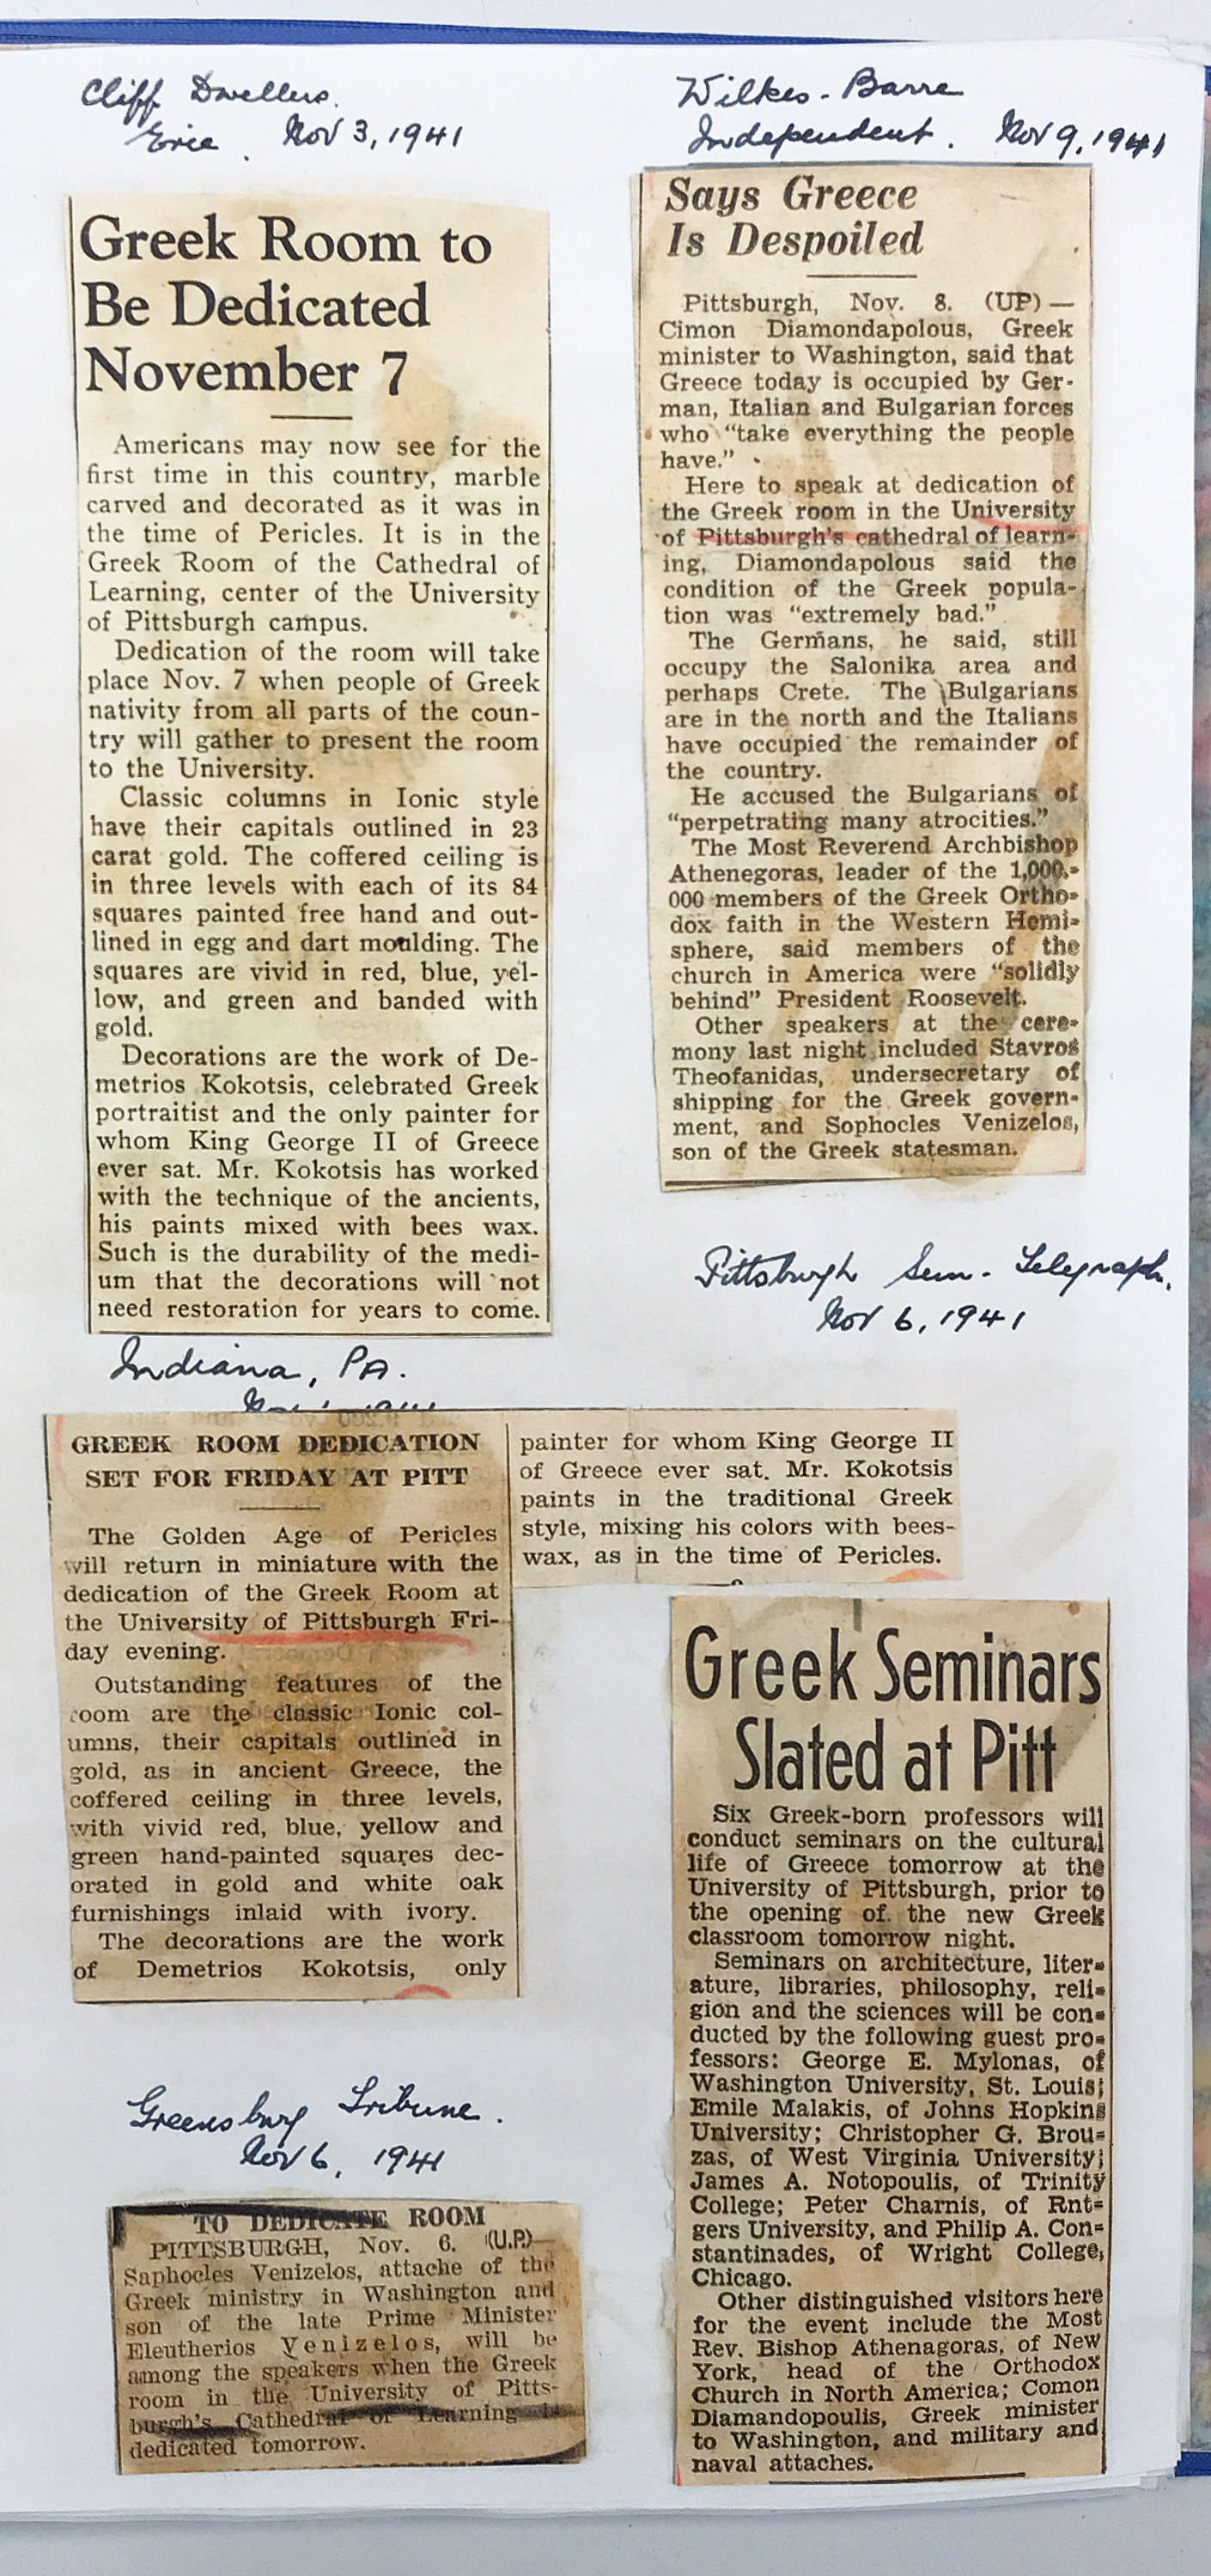 Cliff Dwellers.
Erie. Nov 3, 1941
Greek Room to
Be Dedicated
November 7
Americans may now see for the
first time in this country, marble
carved and decorated as it was in
the time of Pericles. It is in the
Greek Room of the Cathedral of
Learning, center of the University
of Pittsburgh campus.
Dedication of the room will take
place Nov. 7 when people of Greek
nativity from all parts of the coun-
try will gather to present the room
to the University.
Classic columns in Ionic style
have their capitals outlined in 23
carat gold. The coffered ceiling is
in three levels with each of its 84
squares painted free hand and out-
lined in egg and dart moulding. The
squares are vivid in red, blue, yel-
low, and green and banded with
gold.
Decorations are the work of De-
metrios Kokotsis, celebrated Greek
portraitist and the only painter for
whom King George II of Greece
ever sat. Mr. Kokotsis has worked
with the technique of the ancients,
his paints mixed with bees wax.
Such is the durability of the medi-
um that the decorations will not
need restoration for years to come.
Wilkes-Barre
Independent. Nov 9, 1941
Says Greece
Is Despoiled
Pittsburgh, Nov. 8. (UP) —
Cimon Diamondapolous, Greek
minister to Washington, said that
Greece today is occupied by Ger-
man, Italian and Bulgarian forces
who "take everything the people
have."
Here to speak at dedication of
the Greek room in the University
of Pittsburgh's cathedral of learn-
ing, Diamondapolous said the
condition of the Greek popula-
tion was "extremely bad."
The Germans, he said, still
occupy the Salonika area and
perhaps Crete. The Bulgarians
are in the north and the Italians
have occupied the remainder of
the country.
He accused the Bulgarians of
"perpetrating many atrocities."
The Most Reverend Archbishop
Athenegoras, leader of the 1,000,-
000 members of the Greek Ortho-
dox faith in the Western Hemi-
sphere, said members of the
church in America were "solidly
behind" President Roosevelt.
Other speakers at the cere-
mony last night included Stavros
Theofanidas, undersecretary of
shipping for the Greek govern-
ment, and Sophocles Venizelos,
son of the Greek statesman.
Indiana, PA.
GREEK ROOM DEDICATION
SET FOR FRIDAY AT PITT
The Golden Age of Pericles
will return in miniature with the
dedication of the Greek Room at
the University of Pittsburgh Fri-
day evening.
Outstanding features of the
room are the classic Ionic col-
umns, their capitals outlined in
gold, as in ancient Greece, the
coffered ceiling in three levels,
with vivid red, blue, yellow and
green hand-painted squares dec-
orated in gold and white oak
furnishings inlaid with ivory.
The decorations are the work
of Demetrios Kokotsis, only
painter for whom King George II
of Greece ever sat. Mr. Kokotsis
paints in the traditional Greek
style, mixing his colors with bees-
wax, as in the time of Pericles.
Pittsburgh Sun-Telegraph.
Nov 6, 1941
Greek Seminars
Slated at Pitt
Six Greek-born professors will
conduct seminars on the cultural
life of Greece tomorrow at the
University of Pittsburgh, prior to
the opening of the new Greek
classroom tomorrow night.
Seminars on architecture, liter-
ature, libraries, philosophy, reli-
gion and the sciences will be con-
ducted by the following guest pro-
fessors: George E. Mylonas, of
Washington University, St. Louis;
Emile Malakis, of Johns Hopkins
University; Christopher G. Brou-
zas, of West Virginia University;
James A. Notopoulis, of Trinity
College; Peter Charnis, of Rnt-
gers University, and Philip A. Con-
stantinades, of Wright College,
Chicago.
Other distinguished visitors here
for the event include the Most
Rev. Bishop Athenagoras, of New
York, head of the Orthodox
Church in North America; Comon
Diamandopoulis, Greek minister
to Washington, and military and
naval attaches.
Greensburg Tribune.
Nov 6, 1941
TO DEDICATE ROOM
PITTSBURGH, Nov. 6. (U.P.)—
Saphocles Venizelos, attache of the
Greek ministry in Washington and
son of the late Prime Minister
Eleutherios Venizelos, will be
among the speakers when the Greek
room in the University of Pitts-
burgh's Cathedral of Learning is
dedicated tomorrow.